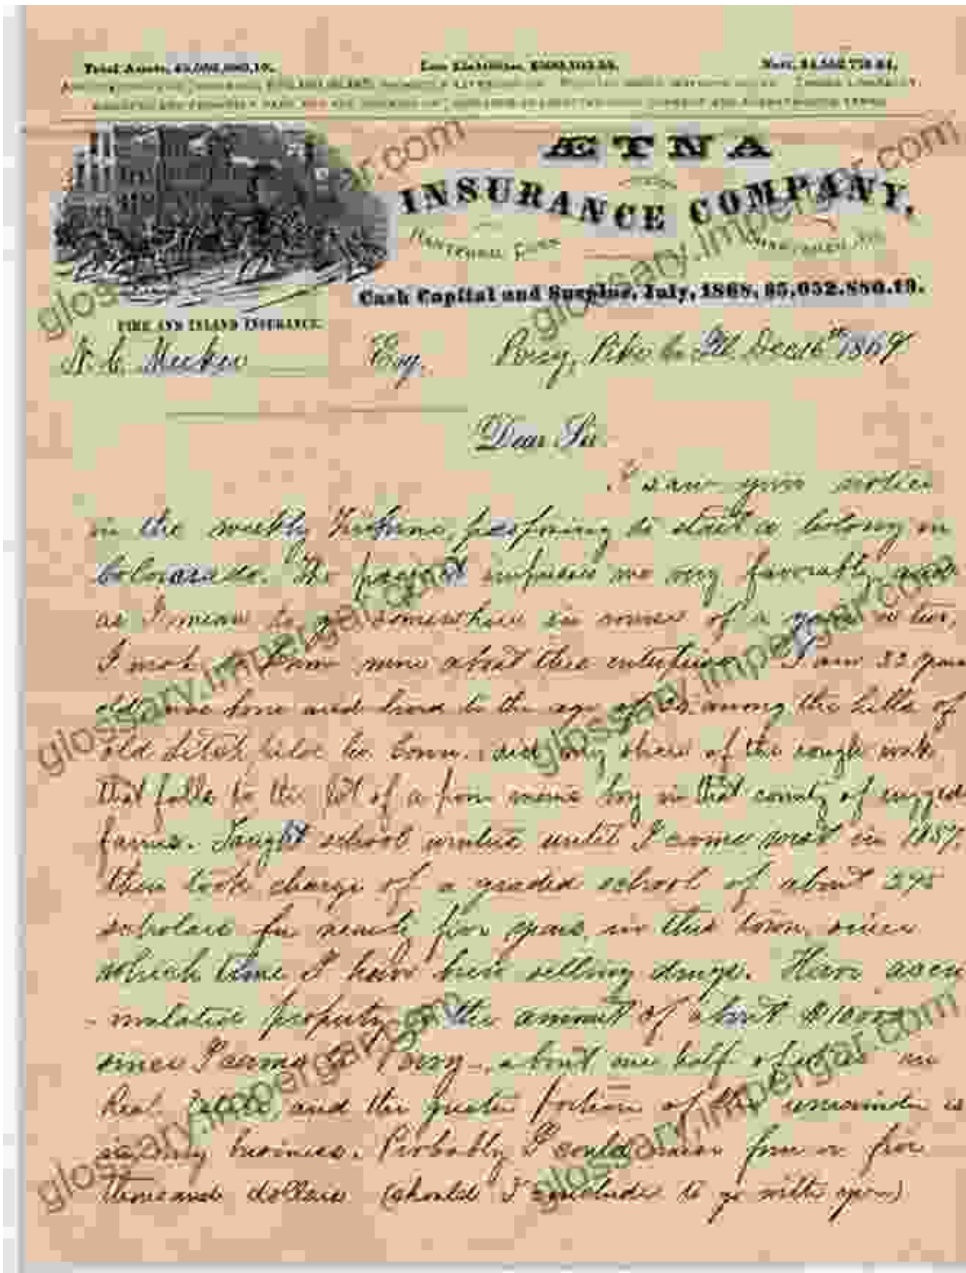 Total Assets, $5,052,880.19.
ÆTNA
INSURANCE COMPANY,
HARTFORD, CONN
Cash Capital and Surplus, July, 1868, $5,052,880.19.
FIRE AND INLAND INSURANCE.
N. C. Meeker Esq. Perry, Pike Co Ill Dec 16th 1869
Dear Sir
I saw your notice
in the weekly Tribune, proposing to start a colony in
Colorado. The project impresses me very favorably and
as I mean to go somewhere in course of a year or two,
I wish to know more about this enterprise. I am 33 years
old, was born and lived to the age of among the hills of
old Co Conn. did my share of the rough work
that falls to the lot of a poor boy in that county of rugged
farms. Taught school winters until I came west in 1857,
then took charge of a graded school of about
scholars for nearly five years, in this town, since
which time I have been selling drugs. Have accu
-mulated property to the amount of about
since I came to Perry, about one half of it is in
Real Estate and the greater portion of the remainder is
in my business. Probably I could raise four or five
thousand dollars (should I conclude to go with you)
glossary.impergar.com
glossary.impergar.com
glossary.impergar.com
glossary.impergar.com
glossary.impergar.com
glossary.impergar.com